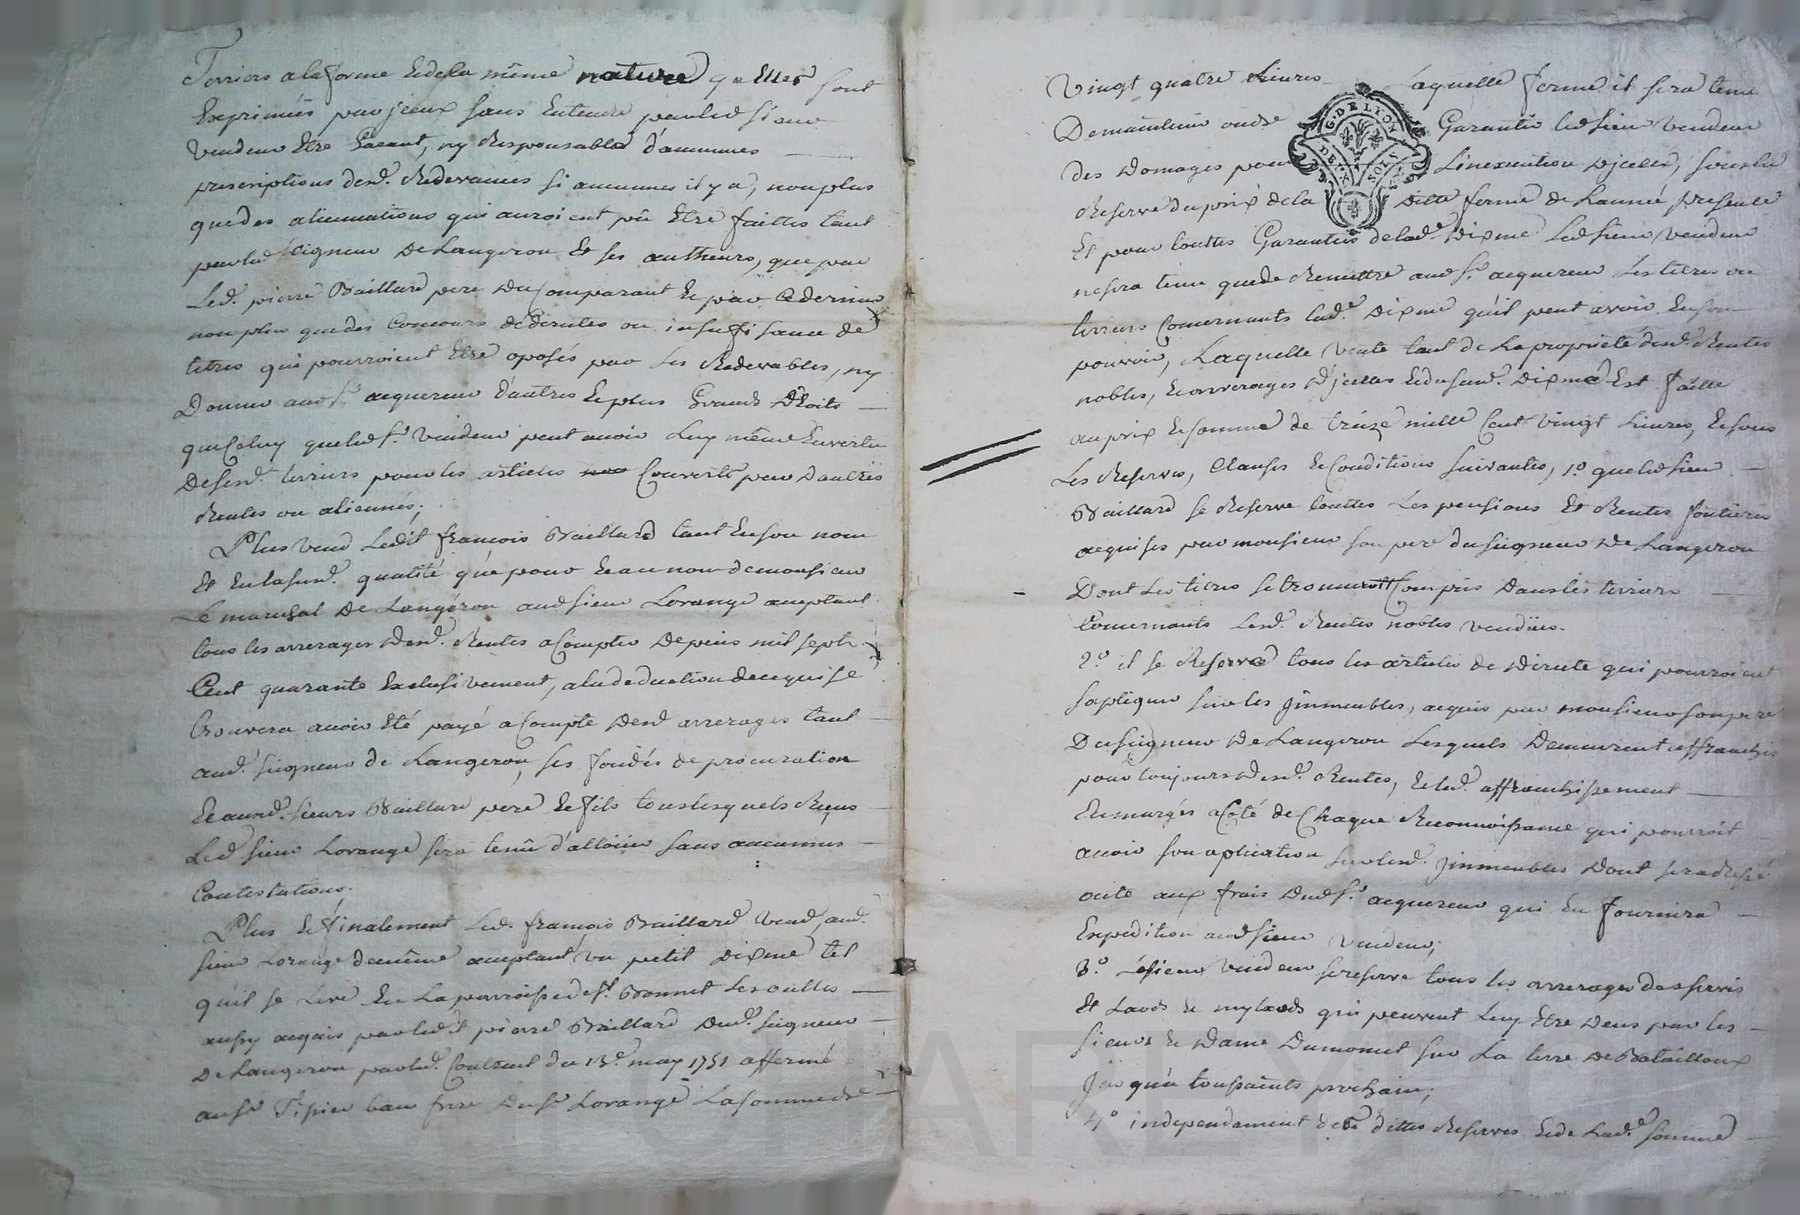 Terriers a la forme et de la même nature qu'elles sont
Exprimées par jceux sans Entendre par led sieur
Vendeur Etre Garant, ny Responsable d'aucunes
prescriptions desd. Redevances si aucunes il y a, non plus
que des alienations qui auroient pû Etre faittes tant
par led seigneur De Langeron Et ses autheurs, que par
Led. pierre Baillard pere Du Comparant Et par Ce dernier
non plus que des Concours de directes ou insuffisance de
titres qui pourroient Etre oposés par les Redevables, ny
Donner aud s. acquereur d'autres Et plus Grands Droits
que Celuy que led s. Vendeur peut avoir Luy même En vertu
Desesd. terriers pour les articles Couverts par d'autres
Rentes ou aliennés;
Plus Vend Ledit françois Baillard tant En son nom
Et En la susd. qualité que pour Et au nom de monsieur
Le marechal De Langeron aud sieur Lorange acceptant
tous les arrerages Desd. Rentes a Compter Depuis mil sept
Cent quarante Exclusivement, a la deduction de ce qui se
trouvera avoir Eté payé a Compte Desd arrerages tant
aud. seigneur de Langeron, ses fondés de procuration
Et ausd. sieurs Baillard pere Et fils tous lesquels Reçus
Led sieur Lorange sera tenû d'alloüer sans aucunnes
Contestations.
Plus Et finalement Led. françois Baillard Vend, aud.
sieur Lorange de même acceptant, un petit Dixme tel
qu'il se Leve En La parroisse de st. Bonnet Les oulles
aussy acquis par ledit pierre Baillard Dud. seigneur
De Langeron par led. Contract du 13e may 1751 affermé
au sr Tixier beau frere Du sr Lorange La somme de
Vingt quatre Livres Laquelle ferme il sera tenu
De maintenir ou de Garantir led sieur Vendeur
des Domages pour L'inexecution D'jcelle, sous la
G. DE LYON
DEUX SOLS
Reserve du prix de la Ditte ferme de L'année presente
Et pour touttes Garanties de lad. Dixme Led sieur Vendeur
ne sera tenu que de Remettre aud s. acquereur Les titres ou
terriers Concernants lad. Dixme qu'il peut avoir En son
pouvoir, Laquelle Vente tant de La propriété desd. Rentes
nobles, Et arrerages D'jcelles Et du susd. Dixme Est faitte
au prix Et somme de treize mille Cent Vingt Livres, Et sous
Les Reserves, Clauses Et Conditions suivantes, 1.º que led sieur
Baillard se Reserve touttes Les pensions Et Rentes foncieres
acquises par monsieur son pere du seigneur De Langeron
Dont Les titres se trouveront Compris Dans les terriers
Concernants Lesd. Rentes nobles vendües.
2.º il se Reserve tous les articles de Directe qui pourroient
s'apliquer sur les jmmeubles, acquis par monsieur son pere
Du seigneur De Langeron Lesquels Demeurent affranchis
pour toujours Desd. Rentes, Et led. affranchissement
Emargés a Côté de Chaque Reconnoissance qui pourroit
avoir son aplication sur lesd. jmmeubles Dont sera dressé
acte aux frais Dud s. acquereur qui En fournira
Expedition aud sieur Vendeur;
3.º Le sieur Vendeur se reserve tous les arrerages des servis
Et Laods Et mylaods qui peuvent Luy Etre Deus par les
sieur Et Dame Dumonet sur La terre De Batailloux
jusqu'a toussaints prochain;
4.º independament de Ce dittes Reserves Et de Lad. somme